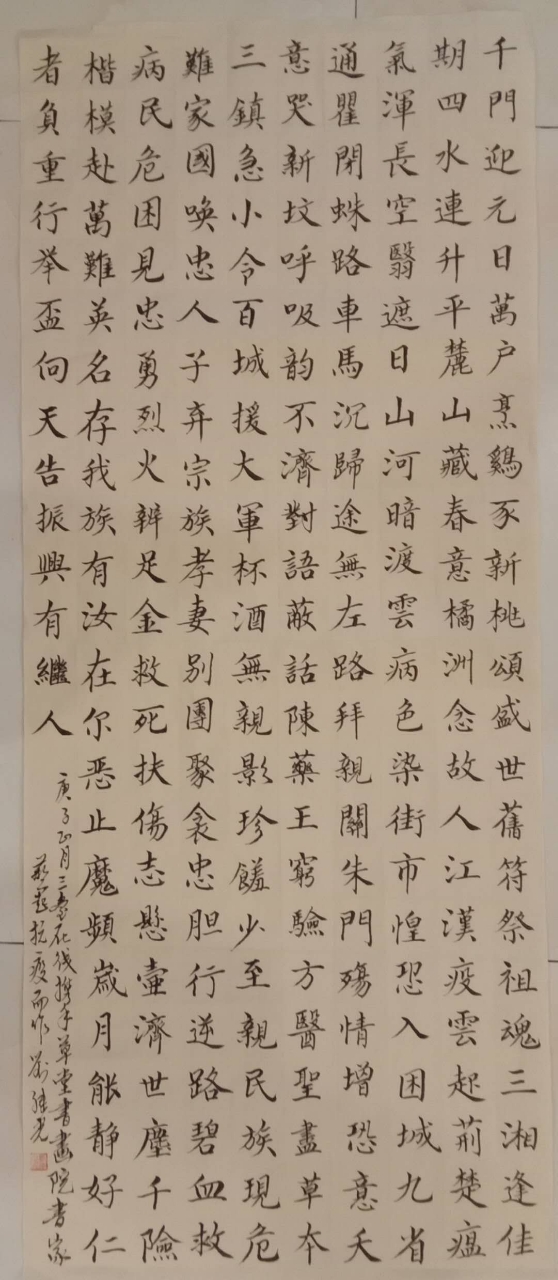 千門迎元日萬户烹鷄豕新桃頌盛世舊符祭祖魂三湘逢佳
期四水連升平麓山藏春意橘洲念故人江漢疫雲起荊楚瘟
氣渾長空翳遮日山河暗渡雲病色染街市惶恐入困城九省
通瞿閉蛛路車馬沉歸途無左路拜親關朱門殤情增恐意夭
意哭新坟呼吸韵不濟對語蔽話陳藥王窮驗方醫聖盡草本
三鎮急小令百城援大軍杯酒無親影珍饈少至親民族現危
難家國唤忠人子弃宗族孝妻别團聚衾忠胆行逆路碧血救
病民危困見忠勇烈火辨足金救死扶傷志懸壺濟世塵千險
楷模赴萬難英名存我族有汝在尔恶止魔頻嵗月能静好仁
者負重行举盃向天告振興有繼人
庚子正月三携手草堂書畫院書家
抗疫而作